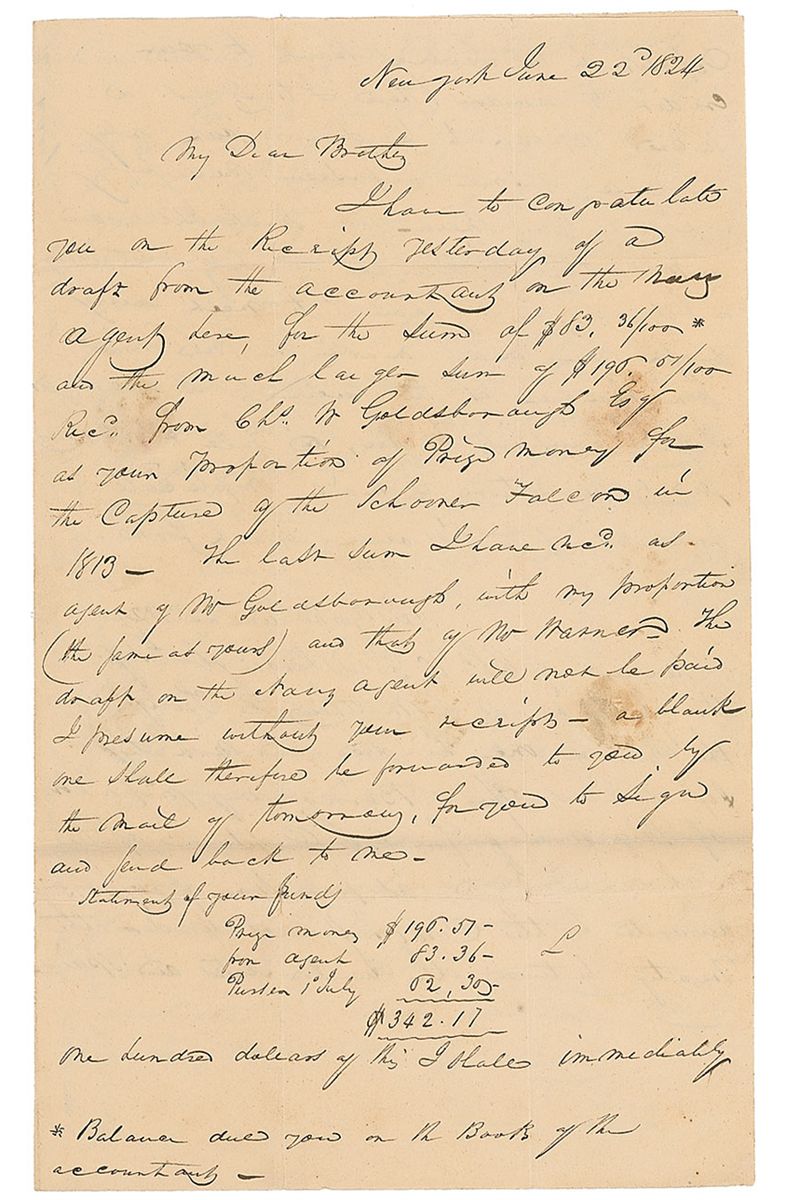 New york June 22d 1824
My Dear Brother
I have to congratulate
you on the Receipt yesterday of a
draft from the accountant on the Navy
agent here, for the sum of $83. 36/100 *
and the much larger sum of $196. 51/100
Recd. from Chs. W Goldsborough Esq
as your proportion of Prize money for
the Capture of the Schooner Falcon in
1813 — The last sum I have recd. as
agent of Mr Goldsborough, with my proportion
(the same as yours) and that of Mr Warner. The
draft on the Navy agent will not be paid
I presume without your receipt — a blank
one shall therefore be forwarded to you by
the mail of tomorrow, for you to sign
and send back to me —
Statement of your funds
Prize money $196.51—
from agent 83.36—
Purser 1st July 62,30—
$342.17
one hundred dollars of this I shall immediately
* Balance due you on the Books of the
accountant —